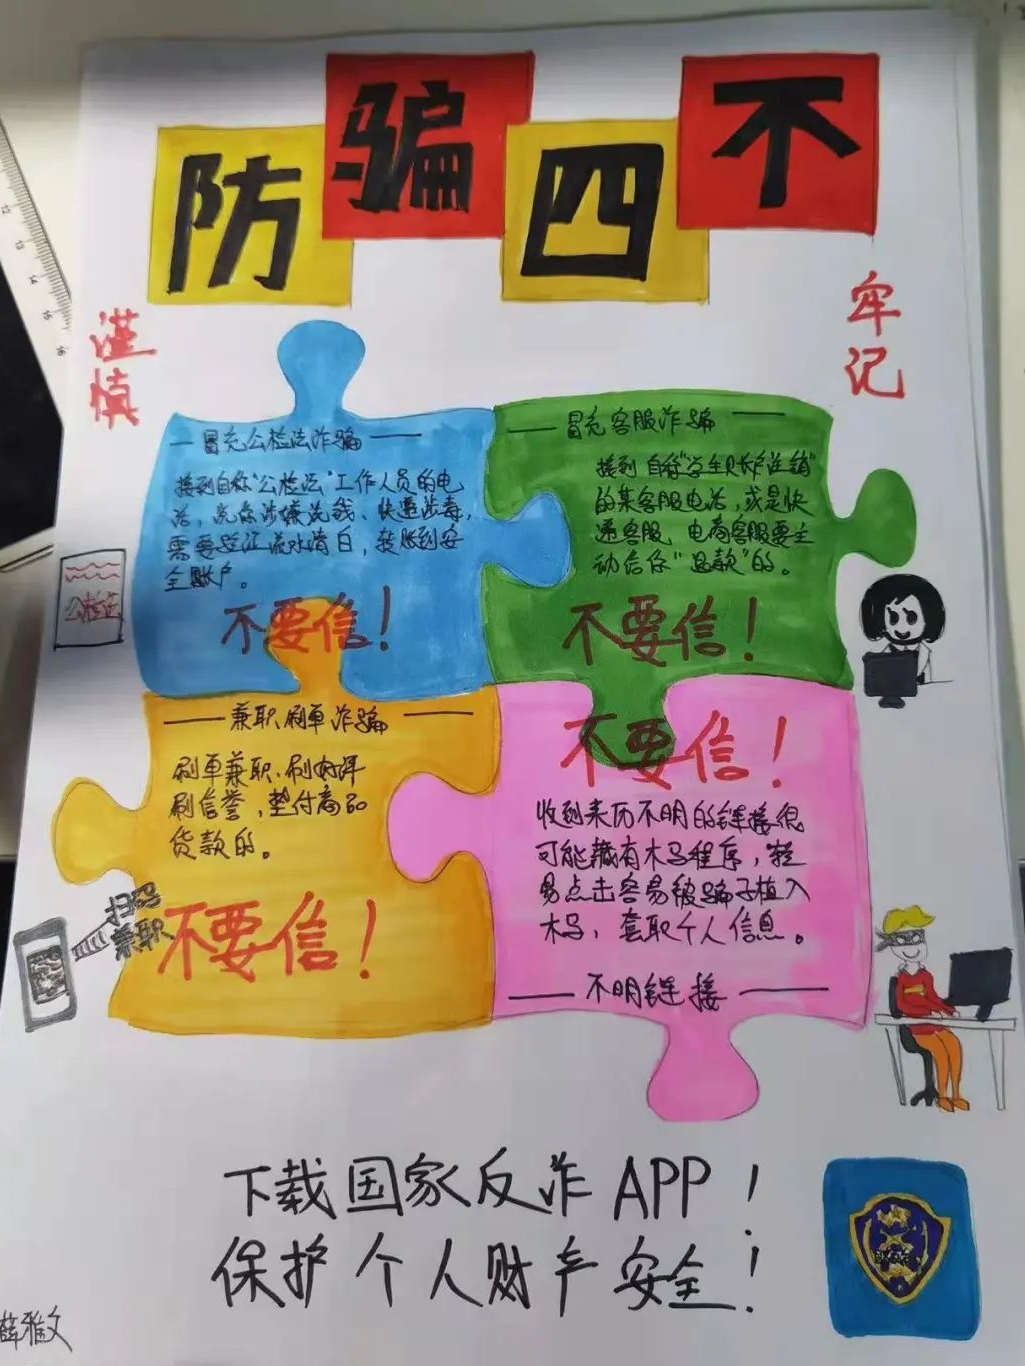 防骗四不
谨慎
牢记
冒充公检法诈骗
接到自称"公检法"工作人员的电
话，说你涉嫌洗钱、快递涉毒，
需要验证流水清白，转账到安
全账户。
不要信！
公检法
冒充客服诈骗
接到自称"学生账户注销"
的某客服电话，或是快
递客服、电商客服要主
动信你"退款"的。
不要信！
兼职刷单诈骗
刷单兼职、刷好评
刷信誉，垫付商品
货款的。
不要信！
扫码
兼职
不要信！
收到来历不明的链接很
可能藏有木马程序，轻
易点击容易被骗子植入
木马，套取个人信息。
不明链接
下载国家反诈APP！
保护个人财产安全！
薛雅文